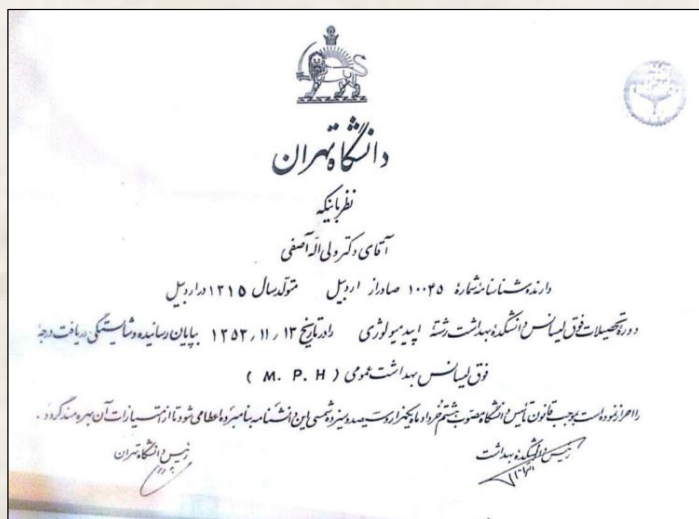 دانشگاه تهران
نظر باینکه
آقای دکتر ولی اله آصفی
دارنده شناسنامه شماره ۱۰۰۴۵ صادر از اردبیل متولد سال ۱۳۱۵ در اردبیل
دوره تحصیلات فوق لیسانس دانشکده بهداشت رشته اپیدمیولوژی را در تاریخ ۱۳۵۳,۱۱,۱۳ بپایان رسانیده و شایستگی دریافت درجه
فوق لیسانس بهداشت عمومی ( M. P. H )
را احراز نموده است بموجب قانون تأسیس دانشگاه مصوب هشتم خرداد ماه یکهزار و سیصد و سیزده شمسی این دانشنامه بنامبرده اعطا می شود تا از امتیازات آن بهره مند گردد.
رئیس دانشکده بهداشت
رئیس دانشگاه تهران